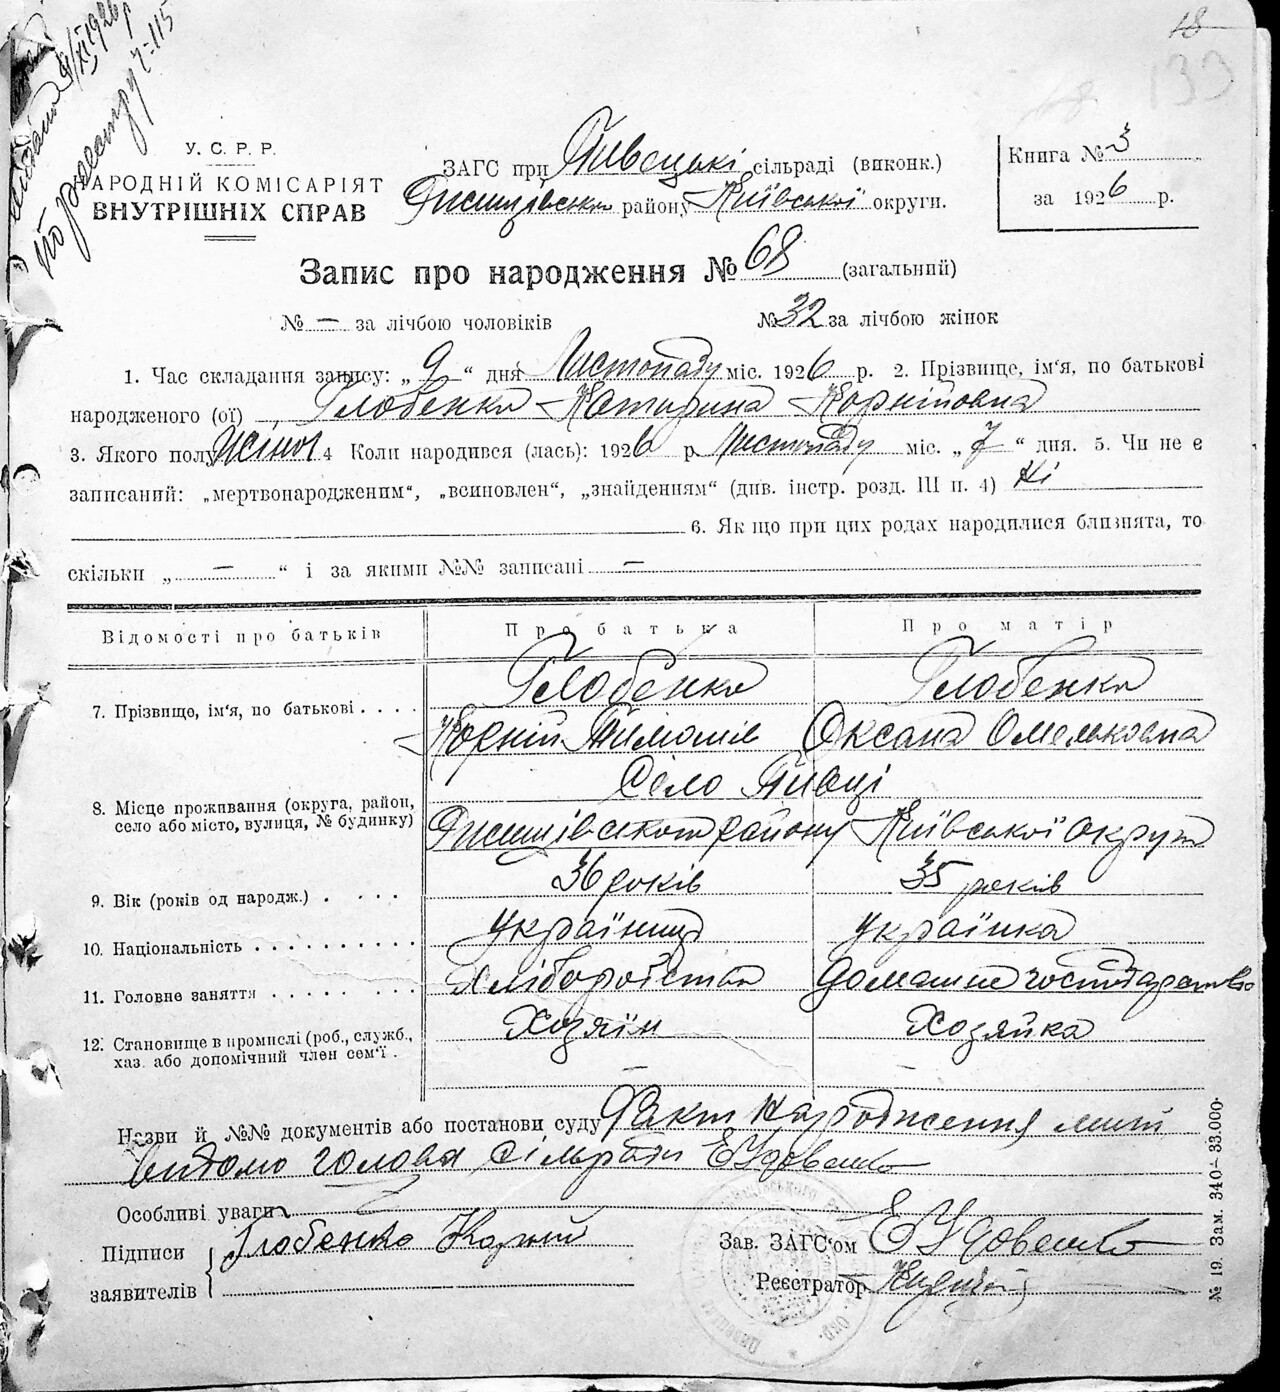 18
133
по реєстру Ч-115
У. С. Р. Р.
НАРОДНІЙ КОМІСАРІЯТ
ВНУТРІШНІХ СПРАВ
ЗАГС при Пивецькі сільраді (виконк.)
району Київської округи.
Книга № 3
за 1926 р.
Запис про народження № 68 (загальний)
№ — за лічбою чоловіків № 32 за лічбою жінок
1. Час складання запису: „9“ дня Листопаду міс. 1926 р. 2. Прізвище, ім'я, по батькові
народженого (ої) Глобенко Катирина Корніївна
3. Якого полу Жіноч 4 Коли народився (лась): 1926 р Листопаду міс. „7“ дня. 5. Чи не є
записаний: „мертвонародженим“, „всиновлен“, „знайденням“ (див. інстр. розд. III п. 4) Ні
6. Якщо при цих родах народилися близнята, то
скільки „ — “ і за якими №№ записані —
Відомості про батьків Про батька Про матір
7. Прізвище, ім'я, по батькові . . . . Глобенко Глобенко
Корній Тимошів Оксана Омельковна
8. Місце проживання (округа, район, село або місто, вулиця, № будинку) Село Пивці
району Київської Округи
9. Вік (років од народж.) . . . . 36 років 35 років
10. Національність . . . . . . . . . . українець українка
11. Головне заняття . . . . . . . Хліборобство домашнє господарство
12. Становище в промислі (роб., служб., хаз. або допомічний член сем'ї . Хозяїн Хозяйка
Назви й №№ документів або постанови суду Факт народження мині
видомо голова Сільради Е Удовенко
Особливі уваги
Підписи Глобенко Корній
заявителів
Зав. ЗАГС'ом Е Удовенко
Реєстратор
№ 19. Зам. 340—33.000.